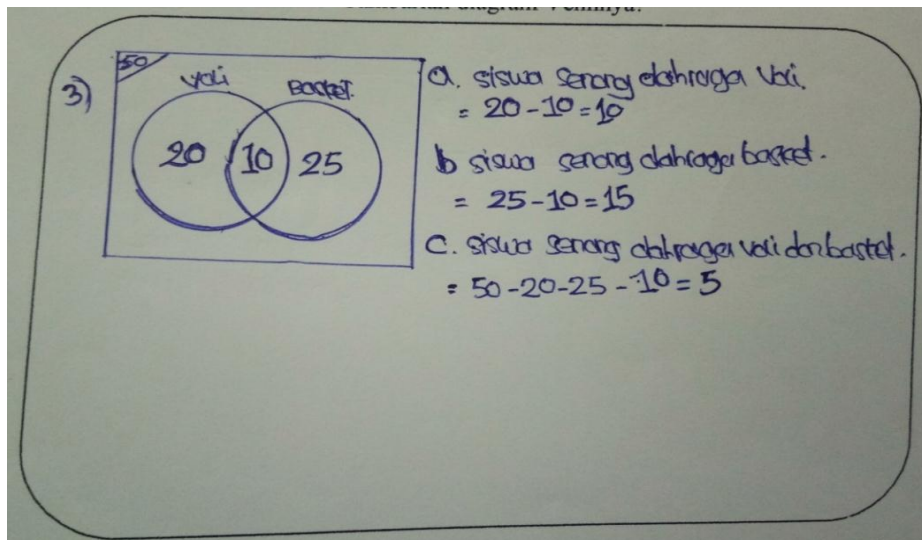 diagram Vennnya.
3)
50
Voli
Basket.
20 10 25
a. siswa senang olahraga Voli.
= 20 - 10 = 10
b siswa senang olahraga basket.
= 25 - 10 = 15
c. siswa senang olahraga voli dan basket.
= 50 - 20 - 25 - 10 = 5